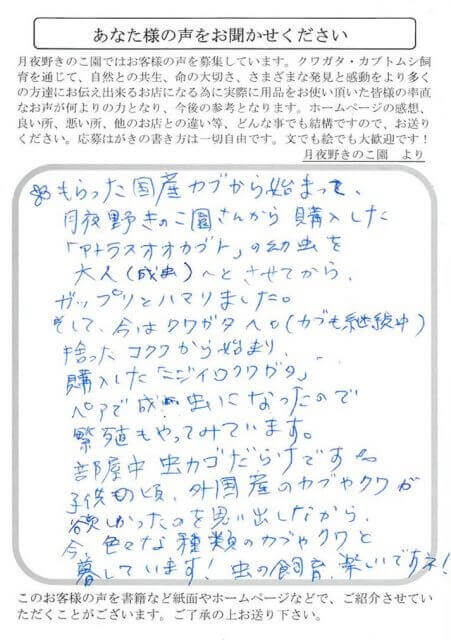 あなた様の声をお聞かせください
月夜野きのこ園ではお客様の声を募集しています。クワガタ・カブトムシ飼
育を通じて、自然との共生、命の大切さ、さまざまな発見と感動をより多く
の方達にお伝え出来るお店になる為に実際に用品をお使い頂いた皆様の率直
なお声が何よりの力となり、今後の参考となります。ホームページの感想、
良い所、悪い所、他のお店との違い等、どんな事でも結構ですので、お送り
ください。応募はがきの書き方は一切自由です。文でも絵でも大歓迎です！
月夜野きのこ園　より
もらった国産カブから始まって、
月夜野きのこ園さんから購入した
「アトラスオオカブト」の幼虫を
大人（成虫）へとさせてから、
ガップリとハマりました。
そして、今はクワガタへ。（カブも継続中）
捨ったコクワから始まり、
購入した「ニジイロクワガタ」
ペアで成虫になったので
繁殖もやってみています。
部屋中虫カゴだらけです
子供の頃、外国産のカブやクワが
欲しかったのを思い出しながら、
今、色々な種類のカブやクワと
暮しています！虫の飼育、楽しいですネ！
このお客様の声を書籍など紙面やホームページなどで、ご紹介させてい
ただくことがございます。ご了承の上お送り下さい。